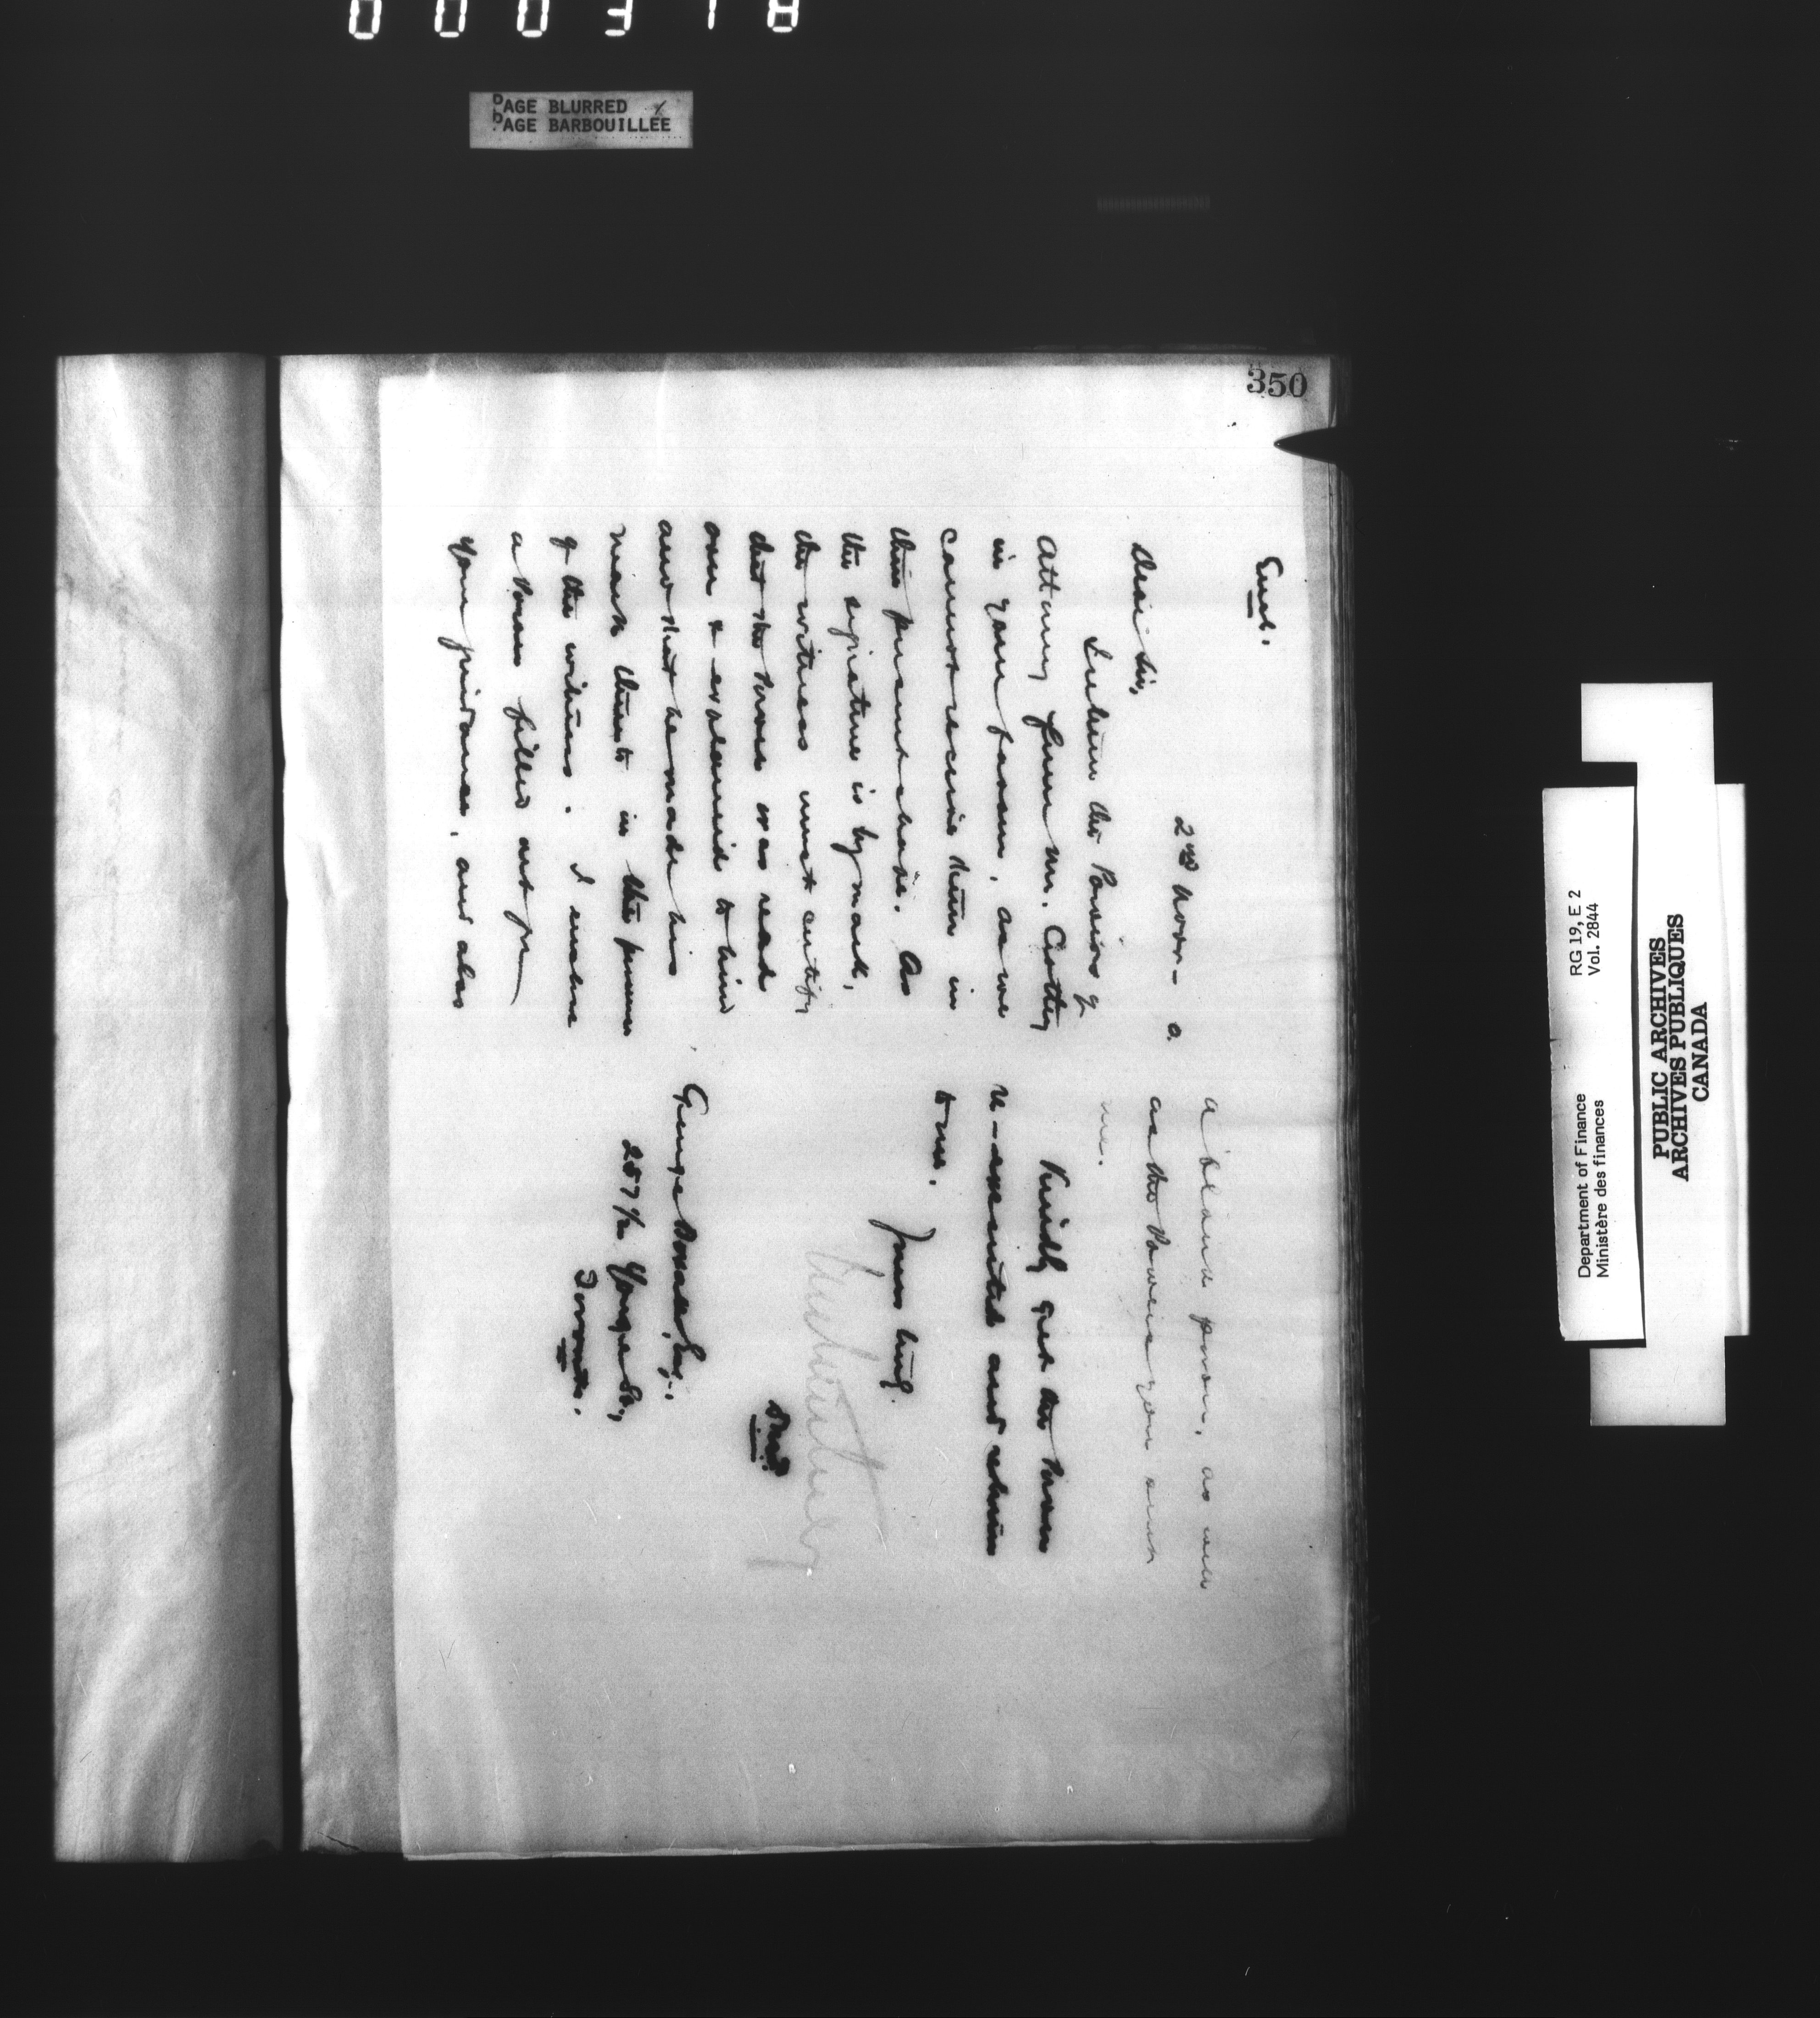 000318
PAGE BLURRED
PAGE BARBOUILLÉE
350
Encl.
2nd Novr- 0.
Dear Sir,
I return the Powers of
Attorney from Mr.
in your favour, as we
cannot receive them in
their present shape. As
the signature is by mark,
the witness must certify
that the Power was read
over & explained to him
and that he made his
mark thereto in the presence
of the witness. I enclose
a Power filled out for
your guidance, and also
a blank power, as well
as the Powers you sent
me.
Kindly get the Power
re-executed and return
to me.
Yours truly
George Esq.,
257½ Yonge St.,
Toronto.
Department of Finance
Ministère des finances
RG 19, E 2
Vol. 2844
PUBLIC ARCHIVES
ARCHIVES PUBLIQUES
CANADA